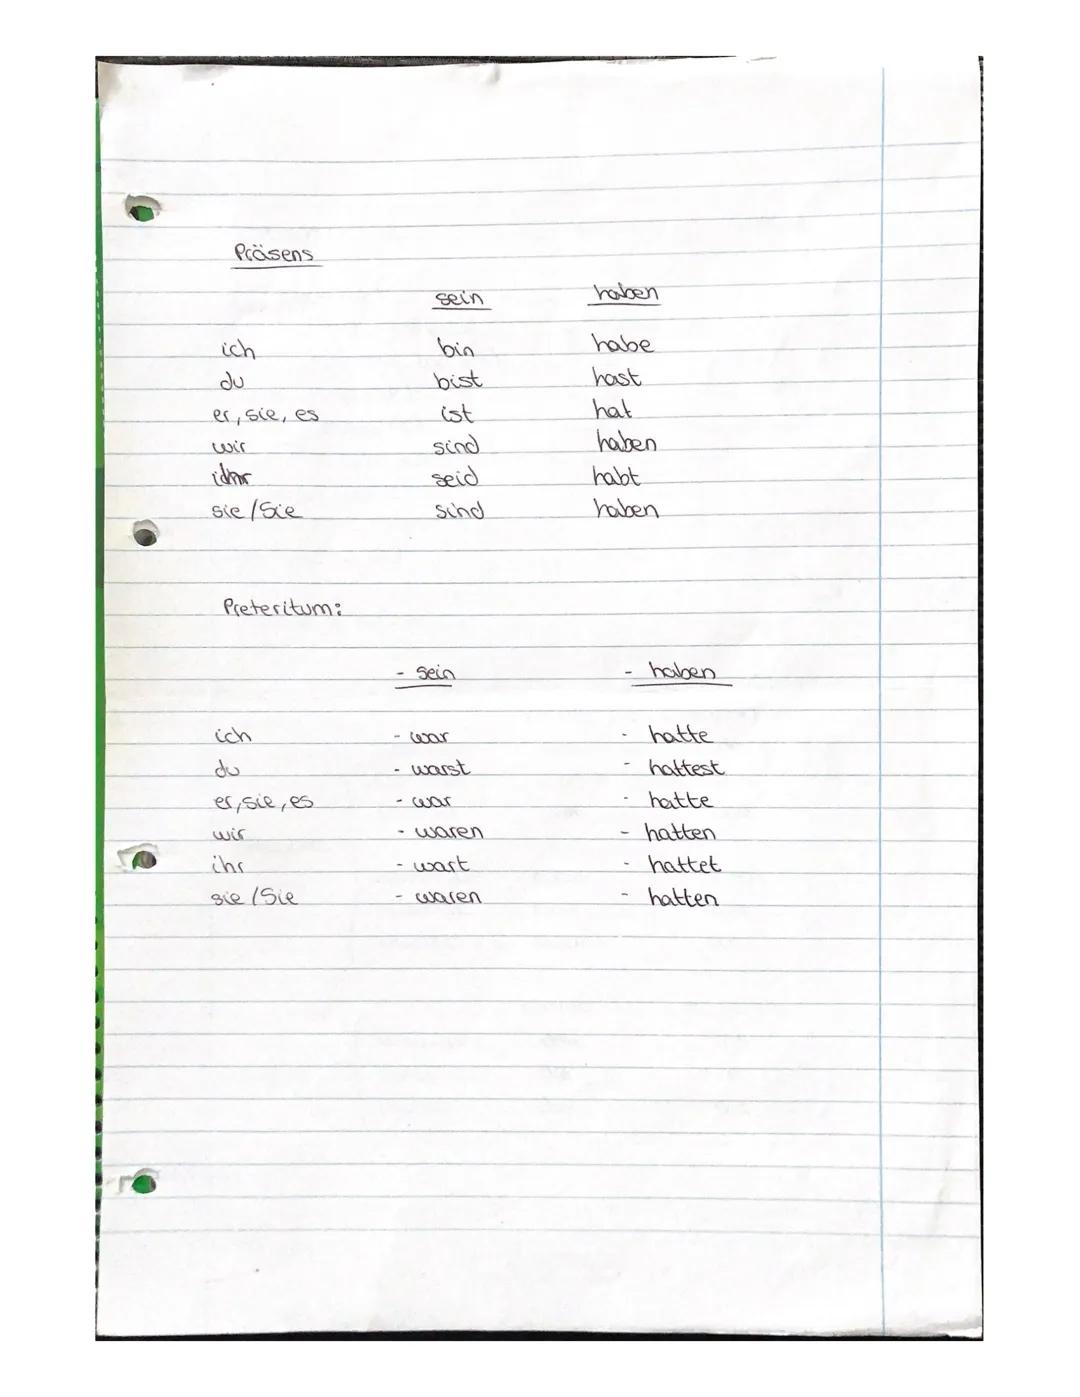 Präsens
sein haben
ich bin habe
du bist hast
er, sie, es ist hat
wir sind haben
ihr seid habt
sie / Sie sind haben
Preteritum:
- sein - haben
ich - war - hatte
du - warst - hattest
er, sie, es - war - hatte
wir - waren - hatten
ihr - wart - hattet
sie / Sie - waren - hatten